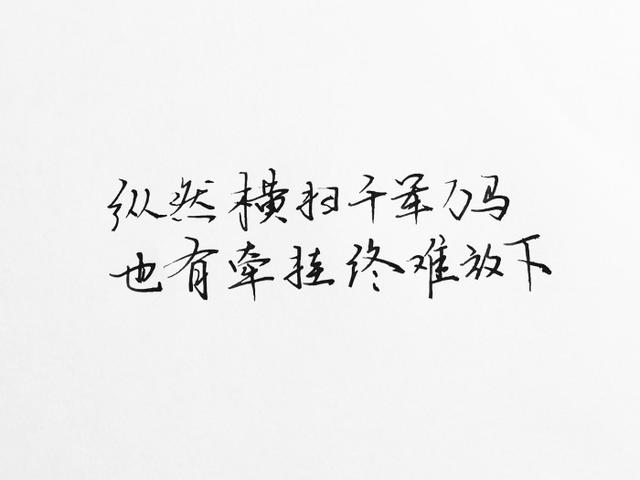 纵然横扫千军万马
也有牵挂终难放下